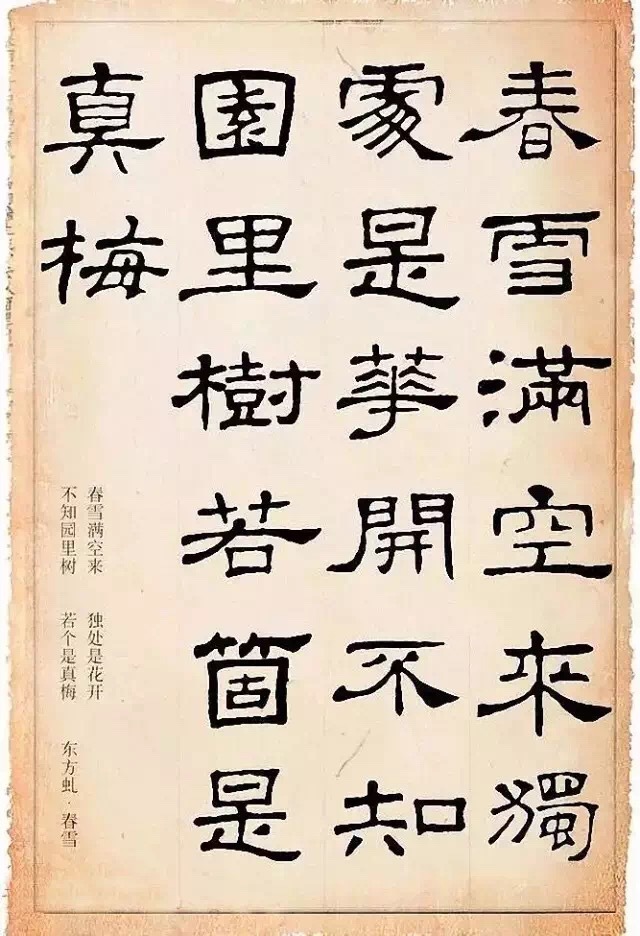 春雪滿空來獨
處是華開不知
園里樹若箇是
真梅
春雪满空来 独处是花开
不知园里树 若个是真梅 东方虬·春雪